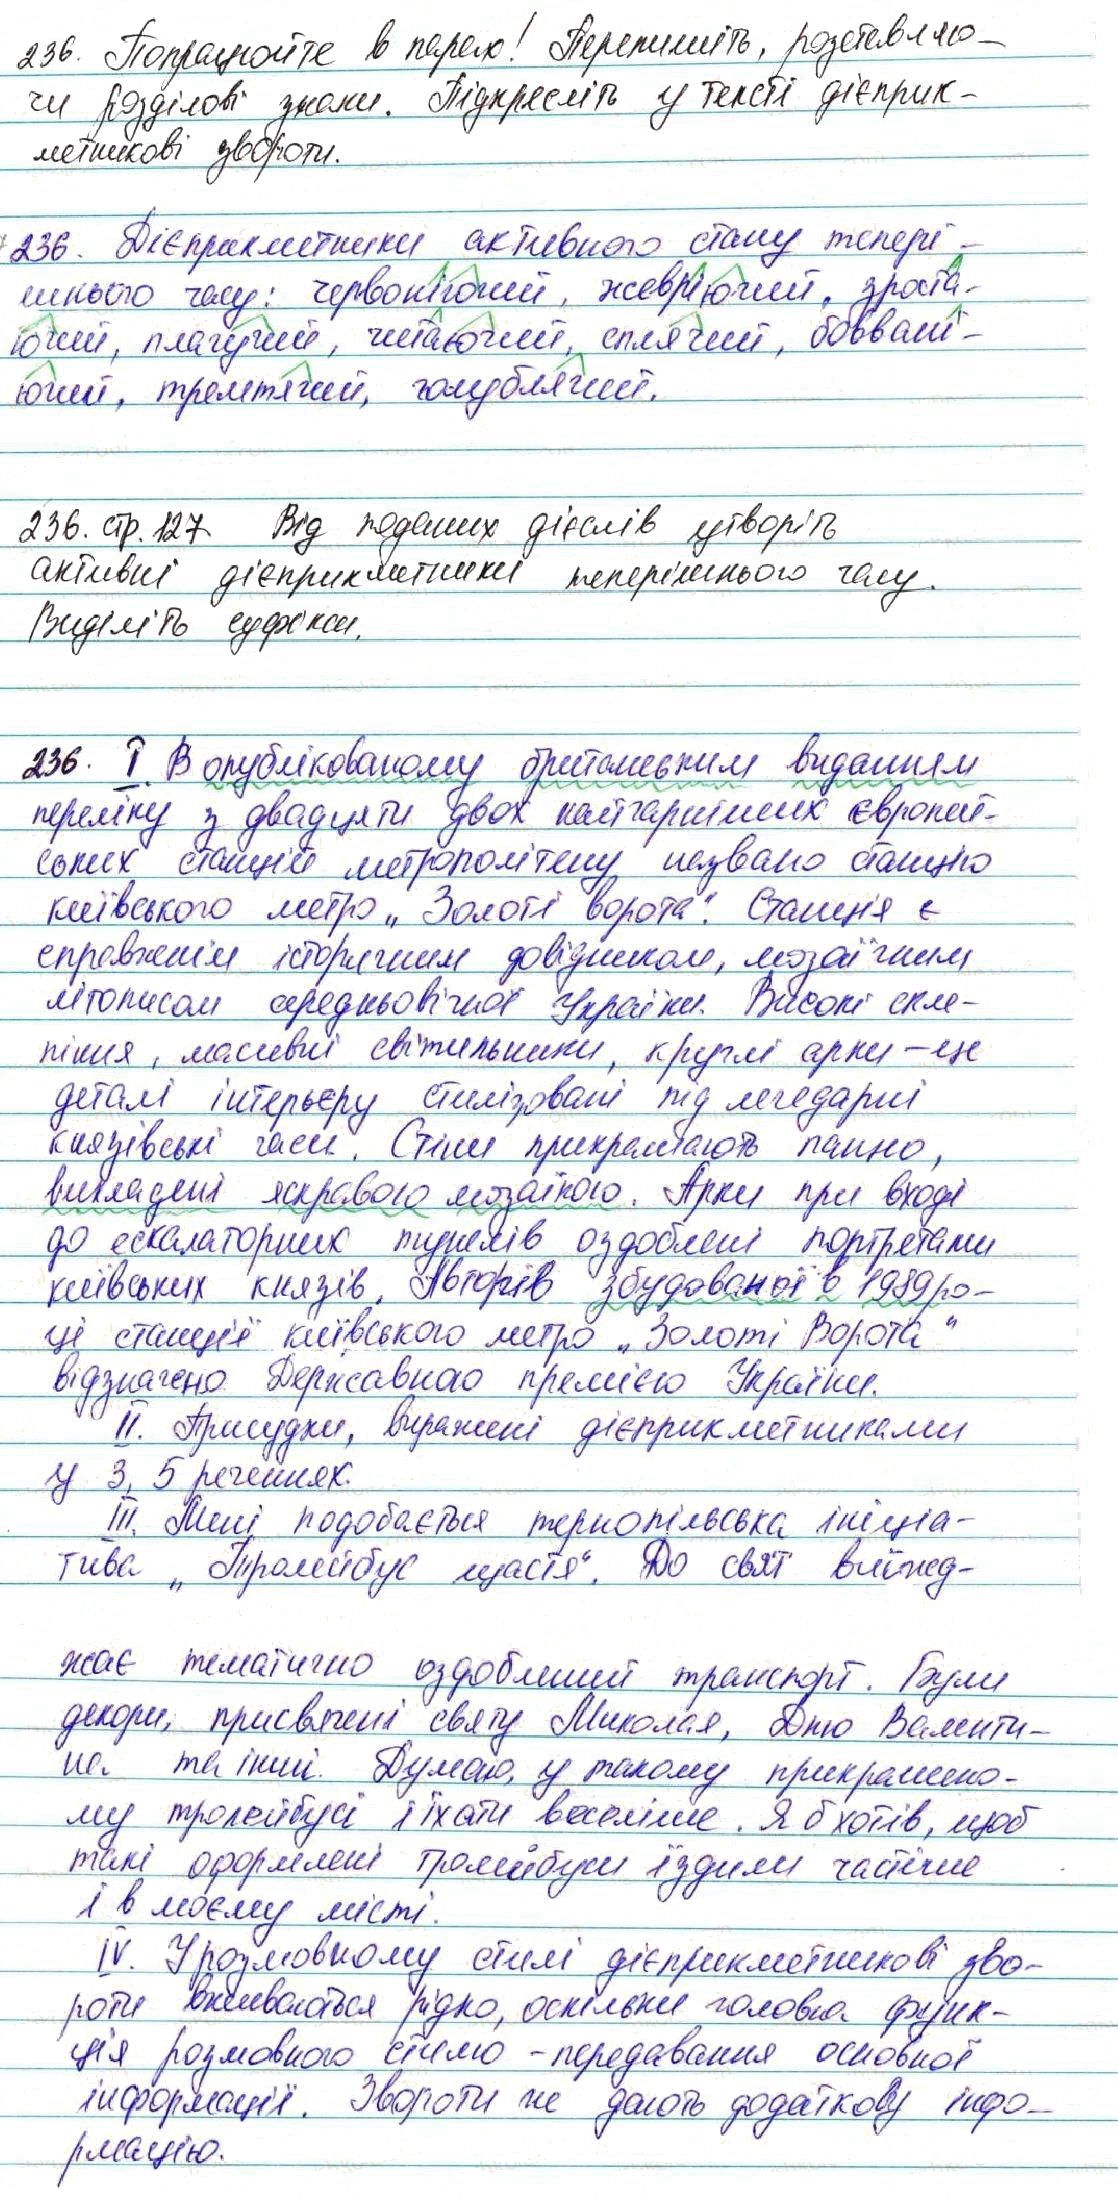 236. Попрацюйте в парах! Перепишіть, розставляю-
чи розділові знаки. Підкресліть у тексті дієприк-
метникові звороти.
236. Дієприкметники активного стану тепері-
шнього часу: червоніючий, жевріючий, зроста-
ючий, плачучий, читаючий, сплячий, боввані-
ючий, тремтячий, голублячий.
236. стр. 127 Від поданих дієслів утворіть
активні дієприкметники теперішнього часу.
Виділіть суфікси.
236. I. В опублікованому британським виданням
переліку з двадцяти двох найгарніших європей-
ських станцій метрополітену названо станцію
київського метро „Золоті ворота". Станція є
справжнім історичним довідником, мозаїчним
літописом середньовічної України. Високі скле-
піння, масивні світильники, круглі арки – це
деталі інтерьєру стилізовані під легедарні
князівські часи. Стіни прикрашають панно,
викладені яскравою мозаїкою. Арки при вході
до ескалаторних тунелів оздоблені портретами
київських князів. Авторів збудованої в 1989 ро-
ці станції київського метро „Золоті Ворота"
відзначено Державною премією України.
II. Присудки, виражені дієприкметниками
у 3, 5 реченнях.
III. Мені подобається тернопільська ініціа-
тива „Тролейбус щастя". До свят виїжд-
жає тематично оздоблений транспорт. Були
декори, присвячені святу Миколая, Дню Валенти-
на та інші. Думаю, у такому прикрашено-
му тролейбусі і їхати веселіше. Я б хотів, щоб
такі оформлені тролейбуси їздили частіше
і в моєму місті.
IV. У розмовному стилі дієприкметникові зво-
роти вживаються рідко, оскільки головна функ-
ція розмовного стилю - передавання основної
інформації. Звороти ж дають додаткову інфо-
рмацію.